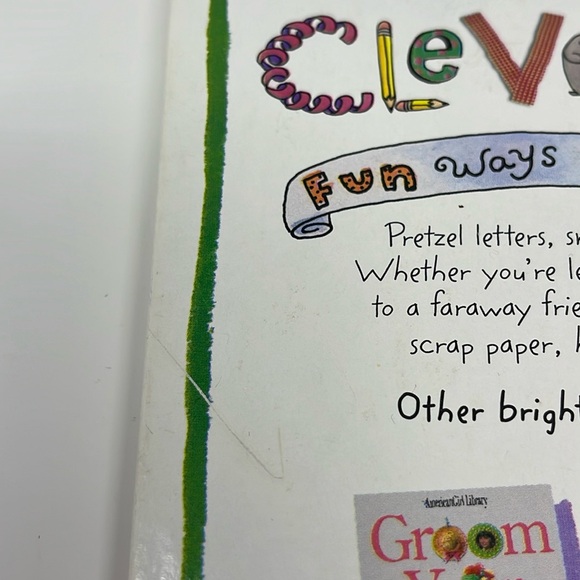 Cleve
Fun Ways
Pretzel letters, s
Whether you're le
to a faraway frie
scrap paper,
Other bright
AmericanGirl Library
Groom